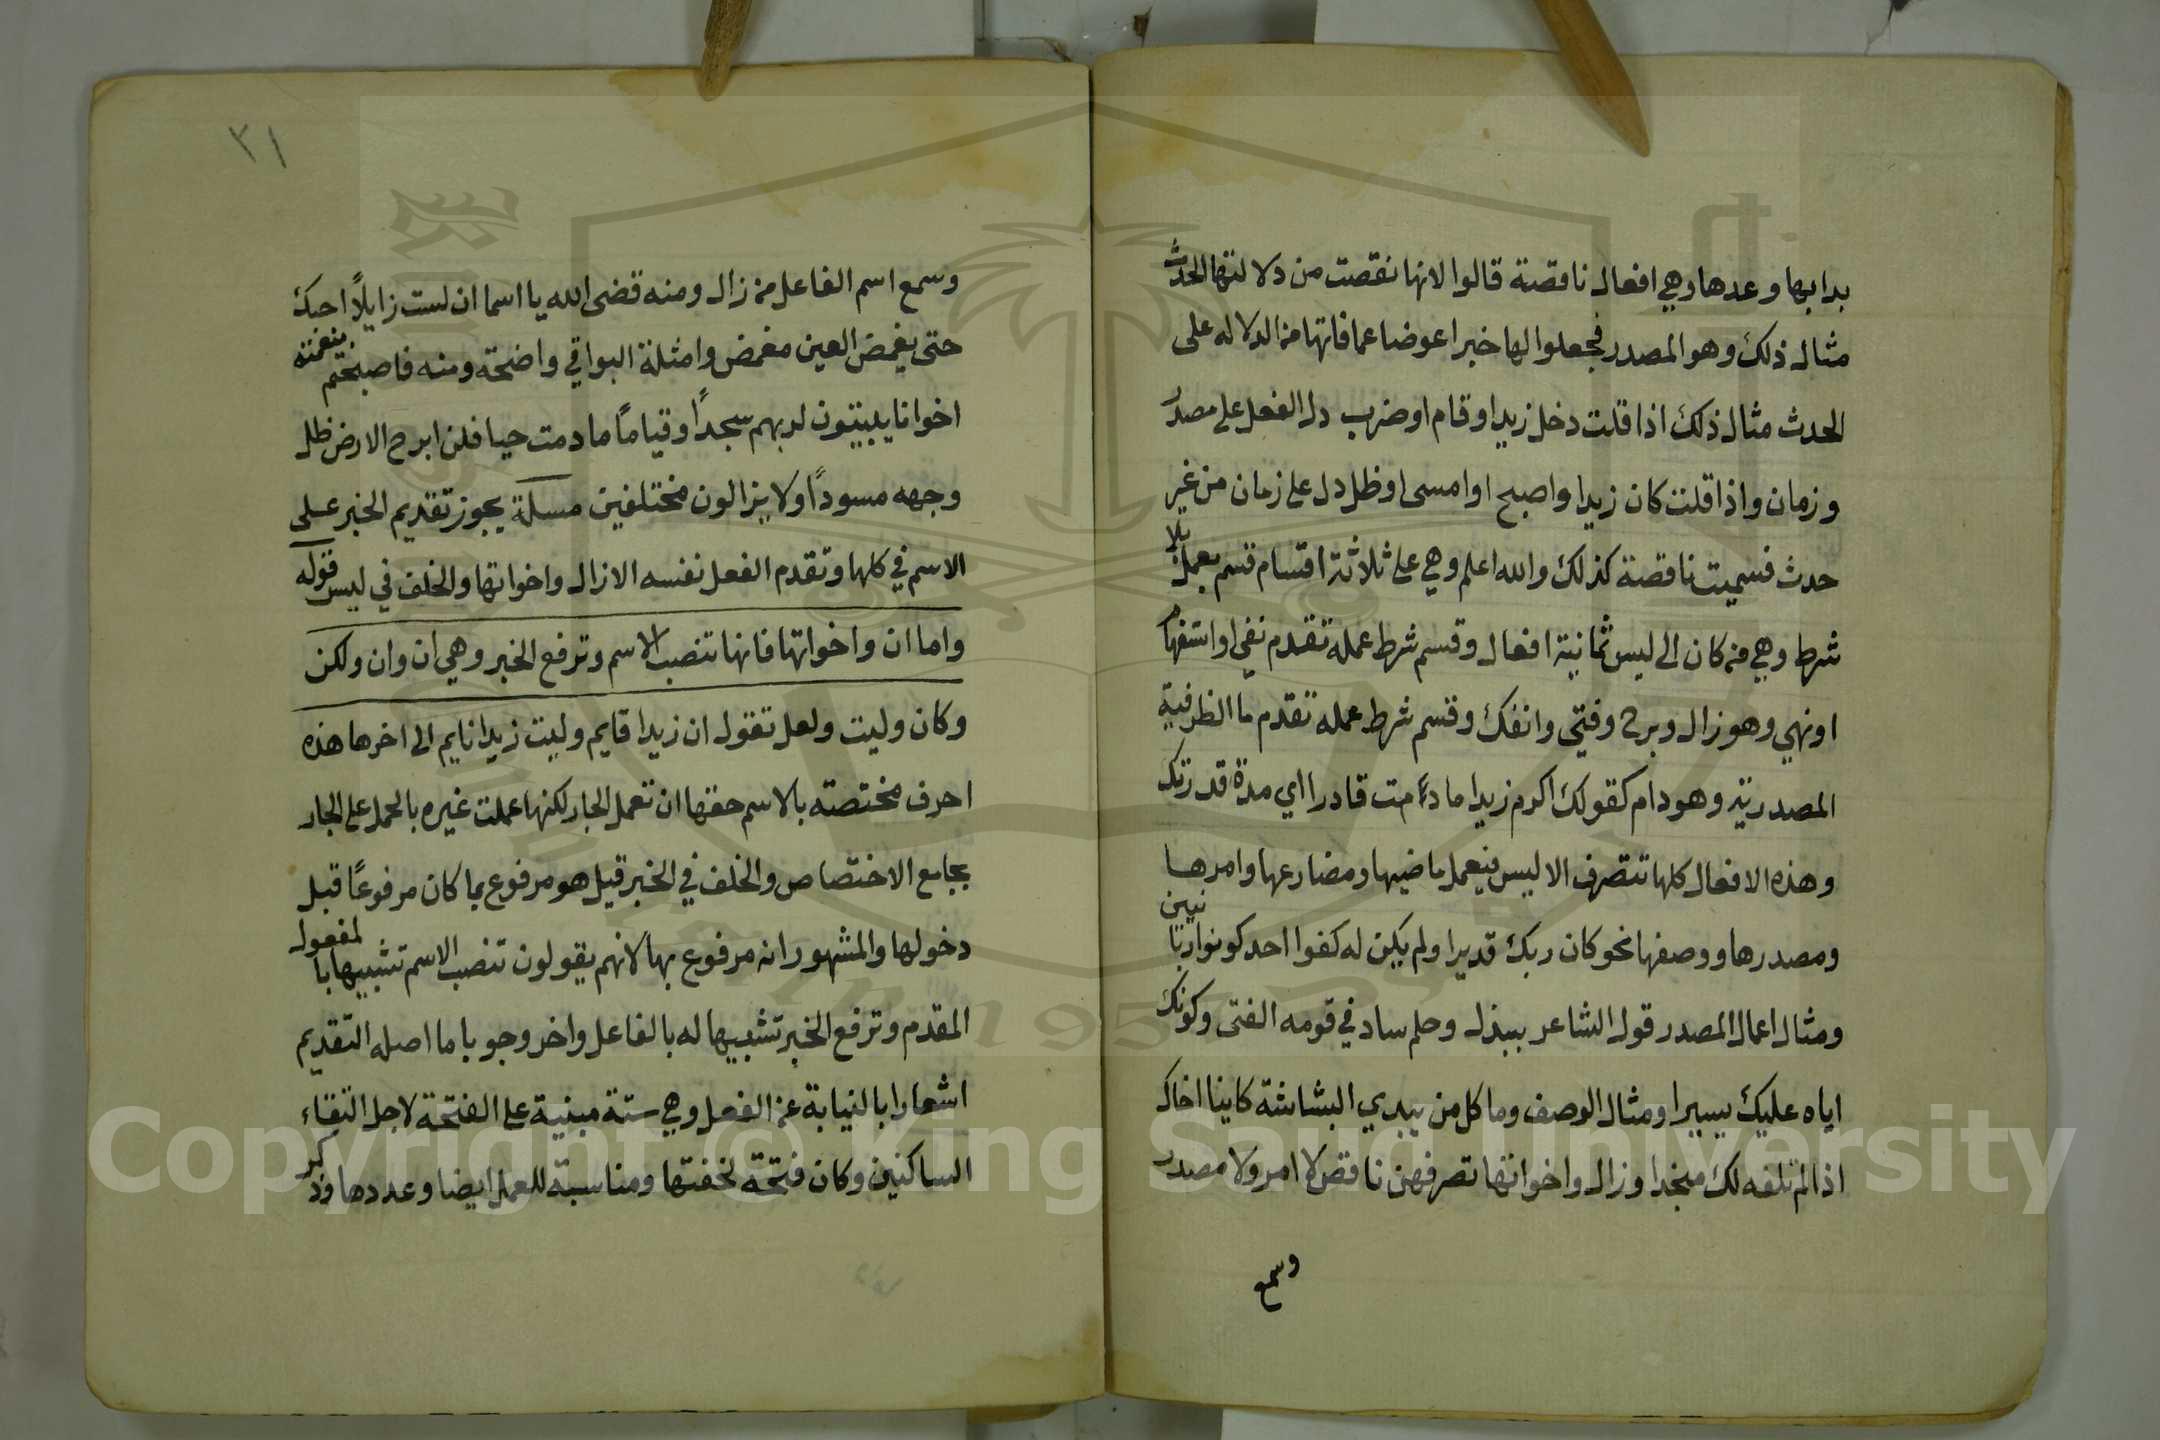 بدا بها وعدها وهي افعال ناقصة قالوا لانها نقصت من دلالتها الحدث
مثال ذلك وهو المصدر فجعلوا لها خبرا عوضا عما فاتها من الدلاله على
الحدث مثال ذلك اذا قلت دخل زيدا وقام او ضرب دل الفعل على مصدر
وزمان واذا قلت كان زيدا واصبح او امسى او ظل دل على زمان من غير
حدث فسميت ناقصة كذلك والله اعلم وهي على ثلاثة اقسام قسم يعمل بلا
شرط وهي من كان الى ليس ثمانية افعال وقسم شرط عمله تقدم نفي او استفهام
او نهي وهو زال وبرح وفتئ وانفك وقسم شرط عمله تقدم ما الظرفية
المصدرية وهو دام كقولك اكرم زيدا ما دمت قادرا اي مدة قدرتك
وهذه الافعال كلها تتصرف الا ليس فيعمل ماضيها ومضارعها وامرها
ومصدرها ووصفها نحو كان ربك قديرا ولم يكن له كفوا احد كونوا ربانيين
ومثال اعمال المصدر قول الشاعر ببذل وحلم ساد في قومه الفتى وكونك
اياه عليك يسيرا ومثال الوصف وما كل من يبدي البشاشة كاينا اخاك
اذا لم تلفه لك منجدا وزال واخواتها تصرفهن ناقص لا امر ولا مصدر
وسمع
٣١
وسمع اسم الفاعل من زال ومنه قضى الله يا اسما ان لست زايلاً احبك
حتى يغمض العين مغمض وامثلة البواقي واضحة ومنه فاصبحتم بنعمته
اخوانا يبيتون لربهم سجداً وقياماً ما دمت حيا فلن ابرح الارض ظل
وجهه مسوداً ولا يزالون مختلفين مسلة يجوز تقديم الخبر على
الاسم في كلها وتقدم الفعل نفسه الا زال واخواتها والخلف في ليس قوله
واما ان واخواتها فانها تنصب الاسم وترفع الخبر وهي ان وان ولكن
وكان وليت ولعل تقول ان زيدا قايم وليت زيدا نايم الى اخرها هذه
احرف مختصته بالاسم حقها ان تعمل الجار لكنها عملت غيره بالحمل على الجار
بجامع الاختصاص والخلف في الخبر قيل هو مرفوع بما كان مرفوعاً قبل
دخولها والمشهور انه مرفوع بها لانهم يقولون تنصب الاسم تشبيها بالمفعول
المقدم وترفع الخبر تشبيها له بالفاعل واخر وجوبا ما اصله التقديم
اشعارا بالنيابة عن الفعل وهي ستة مبنية على الفتحة لاجل التقاء
الساكنين وكان فتحة لخفتها ومناسبة للعمل ايضا وعددها وذكر